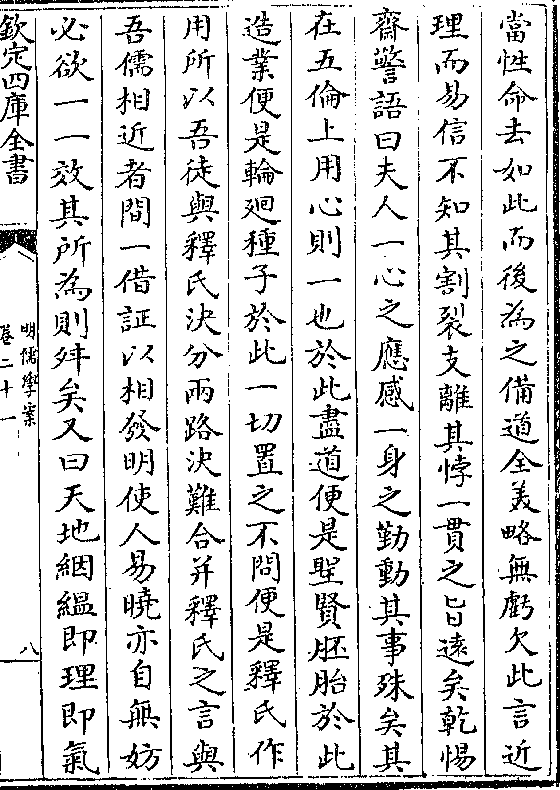 當性命去如此而後為之備道全美略無虧欠此言近
理而易信不知其割裂支離其悖一貫之旨遠矣乾惕
齋警語曰夫人一心之應感一身之勤動其事殊矣其
在五倫上用心則一也於此盡道便是聖賢胚胎於此
造業便是輪廻種子於此一切置之不問便是釋氏作
用所以吾徒與釋氏決分兩路決難合并釋氏之言與
吾儒相近者間一借証以相發明使人易曉亦自無妨
必欲一一效其所為則舛矣又曰天地絪緼即理即氣
欽定四庫全書
明儒學案
卷二十一
八